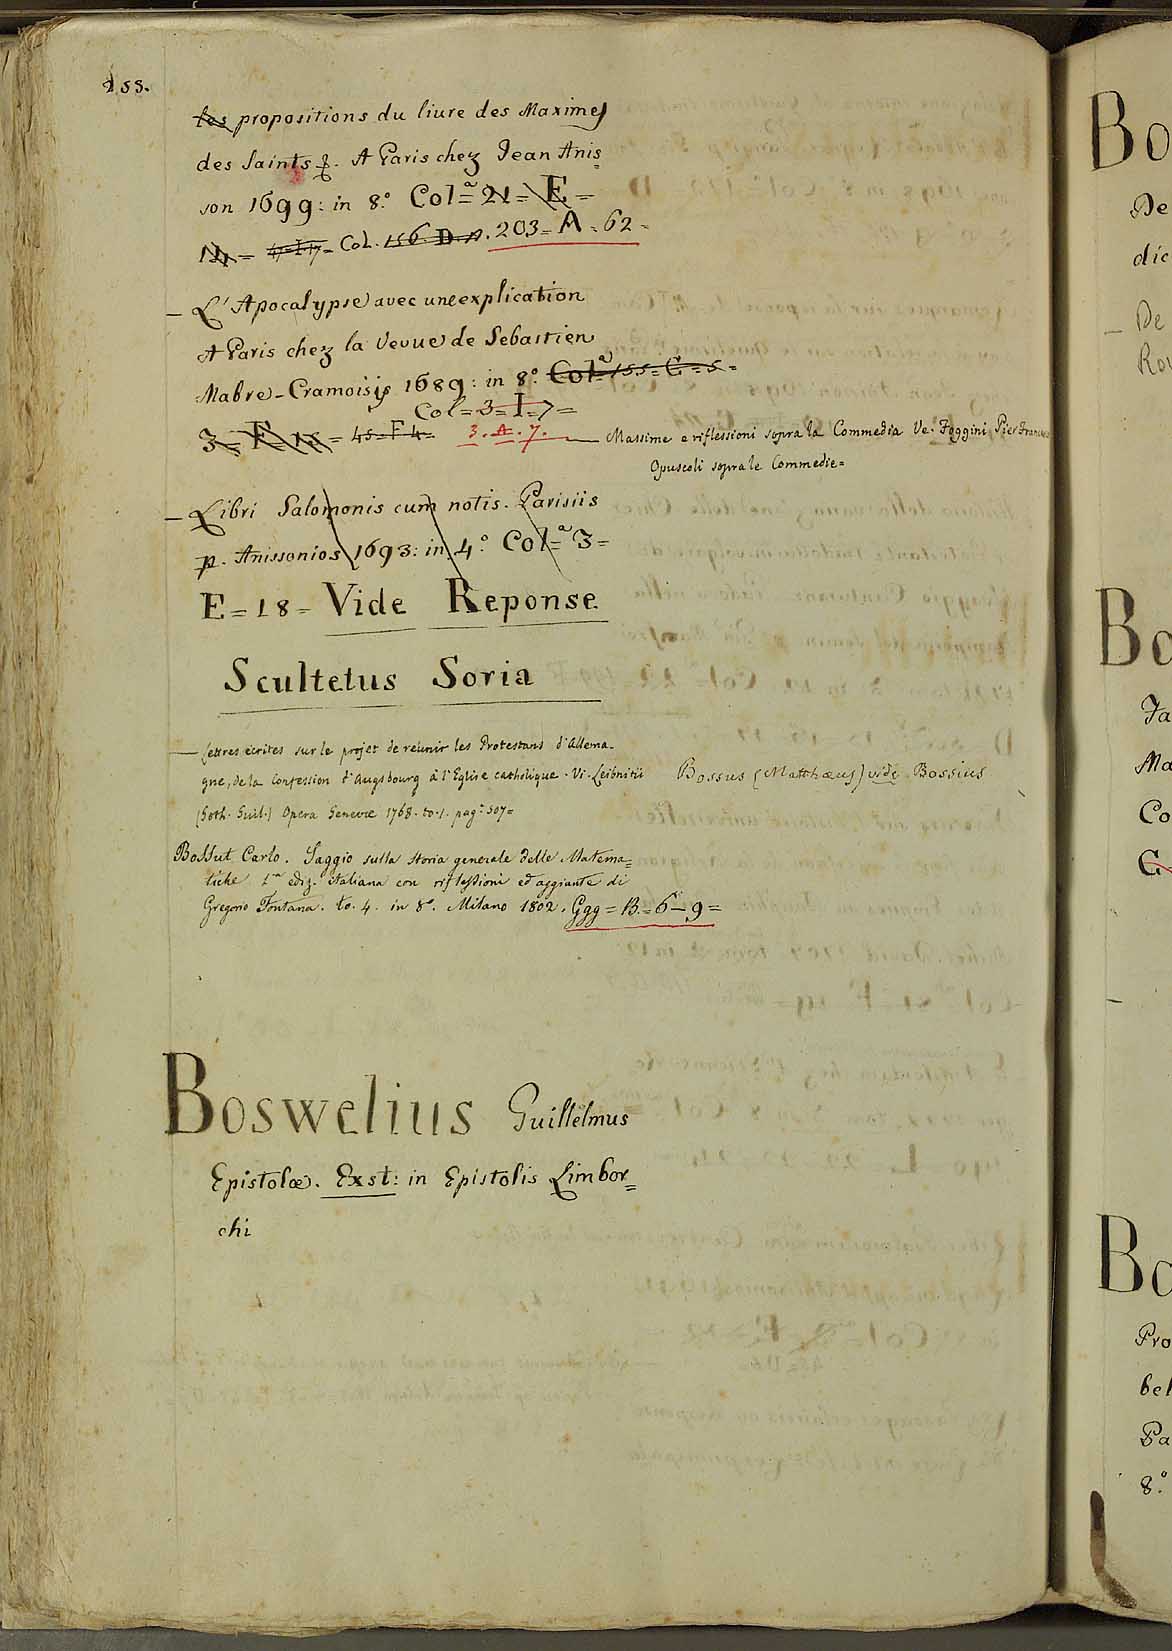 153.
les propositions du liure des Maximes
des Saints &. A Paris chez Jean Anis=
son 1699: in 8.º Colª= 21= E =
14 = 47=I=17= Col. 156. D. 203= A. 62=
_ L'Apocalypse avec une explication
A Paris chez la Vevue de Sebastien
Mabre-Cramoisÿ 1689: in 8.º Colª=155=G=5=
Col=3=I=7=
3= E 15= 45=F4= 3. A. 7. — Massime e riflessioni sopra la Commedia Ve. Foggini Pier Francesco
Opuscoli sopra le Commedie=
_ Libri Salomonis cum notis. Parisiis
p. Anissonios 1693: in 4.º Col=ª 3=
E=18= Vide Reponse
Scultetus Soria
— Lettres ecrites sur le projet de reunir les Protestans d'Allema-
gne, de la Confession d'Augsbourg à l'Eglise catholique. Vi. Leibnitii Bossus (Matthæus) vide Bossius
(Goth. Guil.) Opera Genevæ 1768. to. 1. pag: 507=
Bossut Carlo. Saggio sulla storia generale delle Matema=
tiche 1.ma ediz. italiana con riflessioni ed aggiunte di
Gregorio Fontana. to. 4. in 8.º Milano 1802. Ggg=B.=6-9=
Boswelius Guillelmus
Epistolæ. Exst: in Epistolis Limbor=
chi
Bo
De
dic
_ De
Rou
Bo
Ja
Ma
Co
G
_
Bo
Pro
bel
Pa
8.º